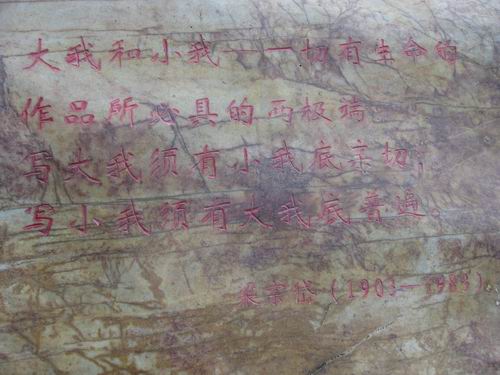 大我和小我——一切有生命的
作品所必具的两极端。
写大我须有小我底亲切；
写小我须有大我底普遍。
梁宗岱（1903—1983）